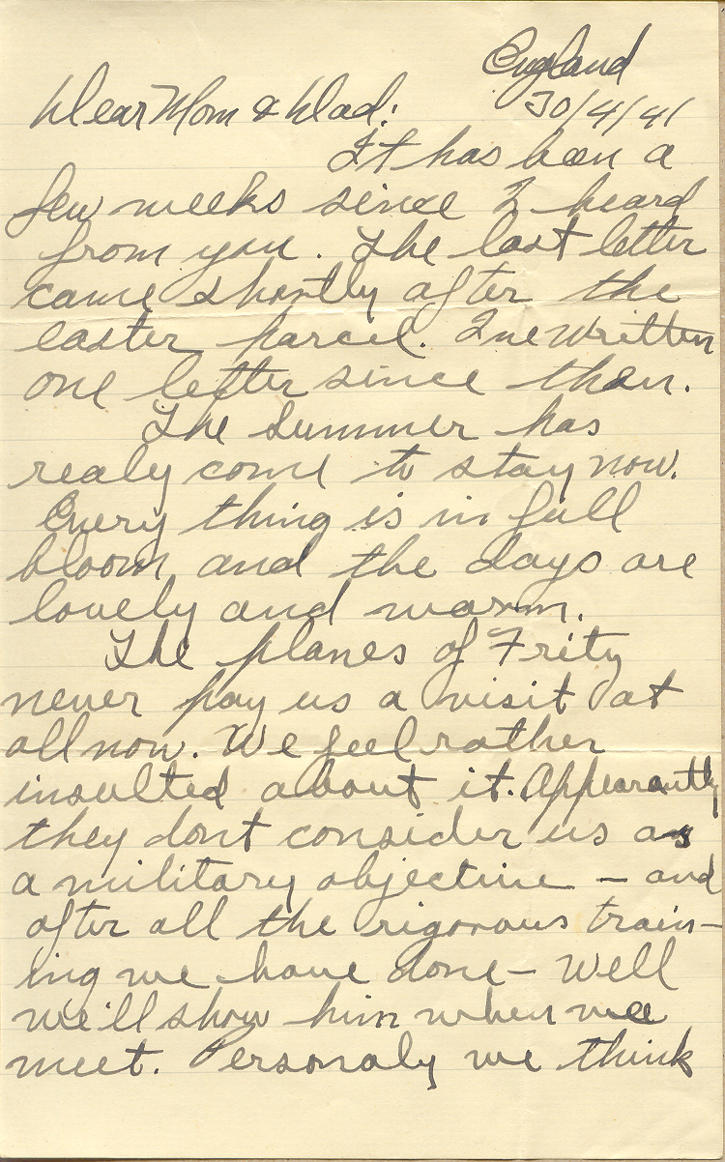 England
Dear Mom & Dad:
30/4/41
It has been a
few weeks since I heard
from you. The last letter
came shortly after the
easter parcel. I've written
one letter since then.
The summer has
realy come to stay now.
Every thing is in full
bloom and the days are
lovely and warm.
The planes of Frity
never pay us a visit at
all now. We feel rather
insulted about it. Appearantly
they dont consider us as
a military objective – and
after all the rigorous train-
ing we have done – Well
we'll show him when we
meet. Personaly we think